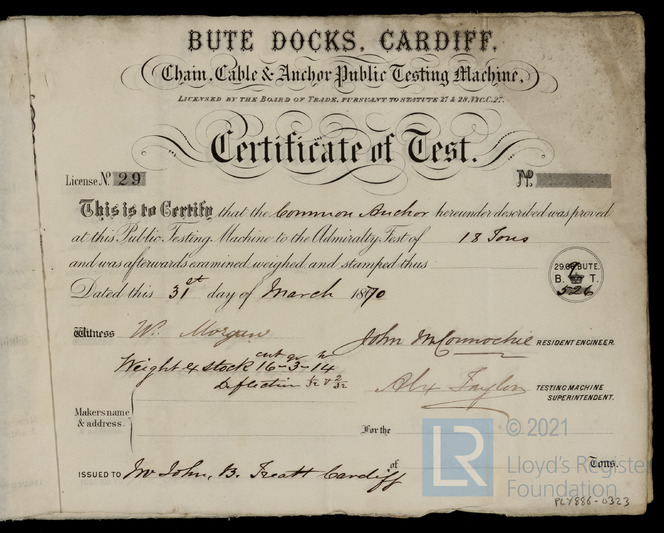 BUTE DOCKS, CARDIFF.
Chain, Cable & Anchor Public Testing Machine,
LICENSED BY THE BOARD OF TRADE, PURSUANT TO STATUTE 27 & 28, VIC. C. 27.
Certificate of Test.
License No. 29
No.
This is to Certify that the Common Anchor hereunder described was proved
at this Public Testing Machine to the Admiralty Test of 18 Tons
and was afterwards examined, weighed and stamped thus
29.06.BUTE.
B. T.
526
Dated this 31st day of March 1870
Witness W. Morgan
John McConnochie RESIDENT ENGINEER.
cwt qr lb
Weight ex stock 16-3-14
Deflection
Alex Taylor TESTING MACHINE SUPERINTENDENT.
Makers name & address.
For the
of
Tons.
ISSUED TO Mr John, B. Treatt Cardiff
LR
© 2021
Lloyd's Register
Foundation
PLY886-0323